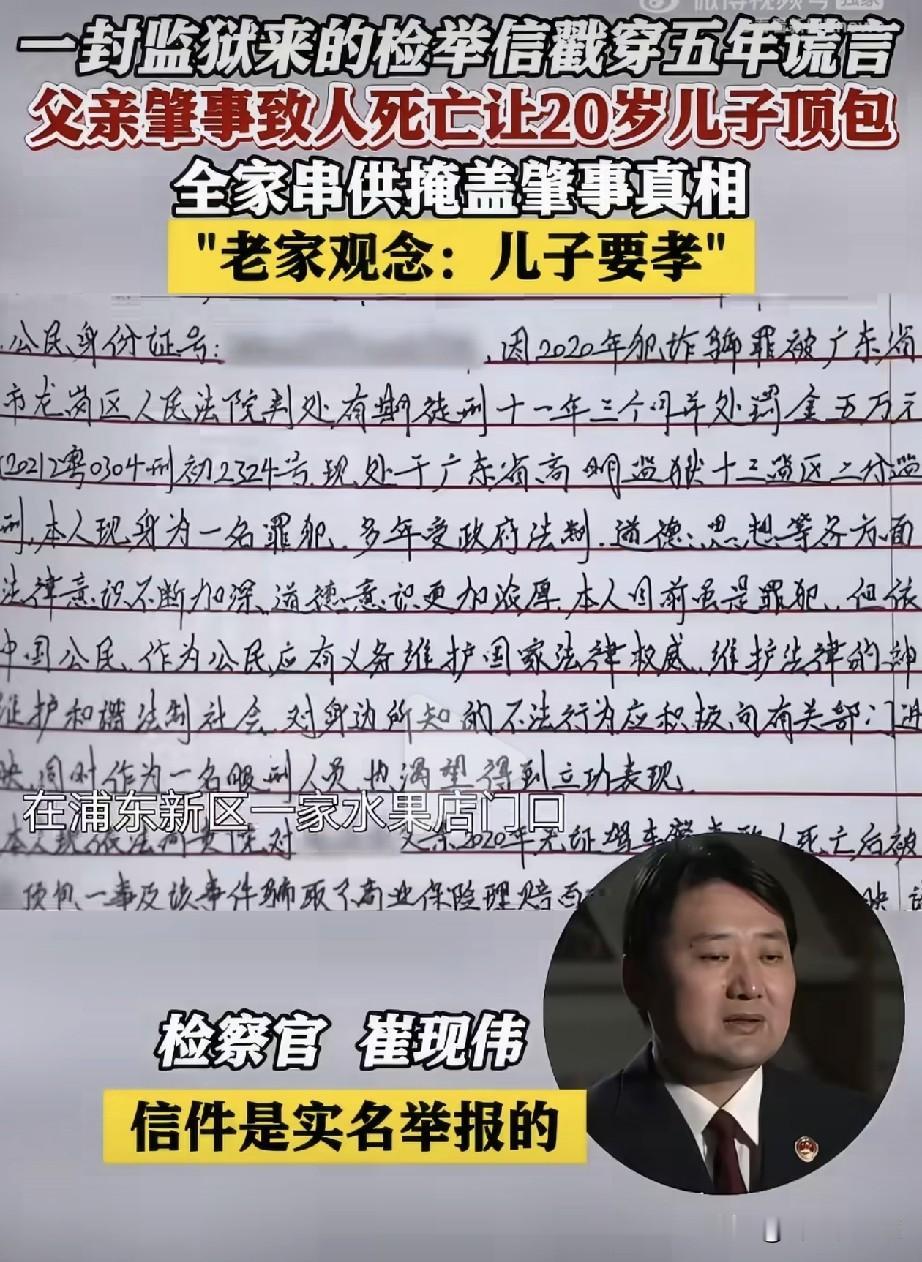 微博视频号
一封监狱来的检举信戳穿五年谎言
父亲肇事致人死亡让20岁儿子顶包
全家串供掩盖肇事真相
"老家观念：儿子要孝"
公民身份证号: ,因2020年犯诈骗罪被广东省
市龙岗区人民法院判处有期徒刑十一年三个月并处罚金五万元
(2021粤0304刑初2324号.现处于广东省高明监狱十三监区二分监
刑,本人现身为一名罪犯.多年受政府法制.道德.思想等各方面
法律意识不断加深、道德意识更加浓厚.本人目前虽是罪犯、但依
中国公民、作为公民应有义务维护国家法律权威、维护法律的神
维护和谐法制社会.对身边所知的不法行为应积极向有关部门
映.同时作为一名服刑人员也渴望得到立功表现.
在浦东新区一家水果店门口
2020年无证驾车肇事致人死亡后被
顶包一事及该事件骗取了商业保险理赔百
检察官 崔现伟
信件是实名举报的